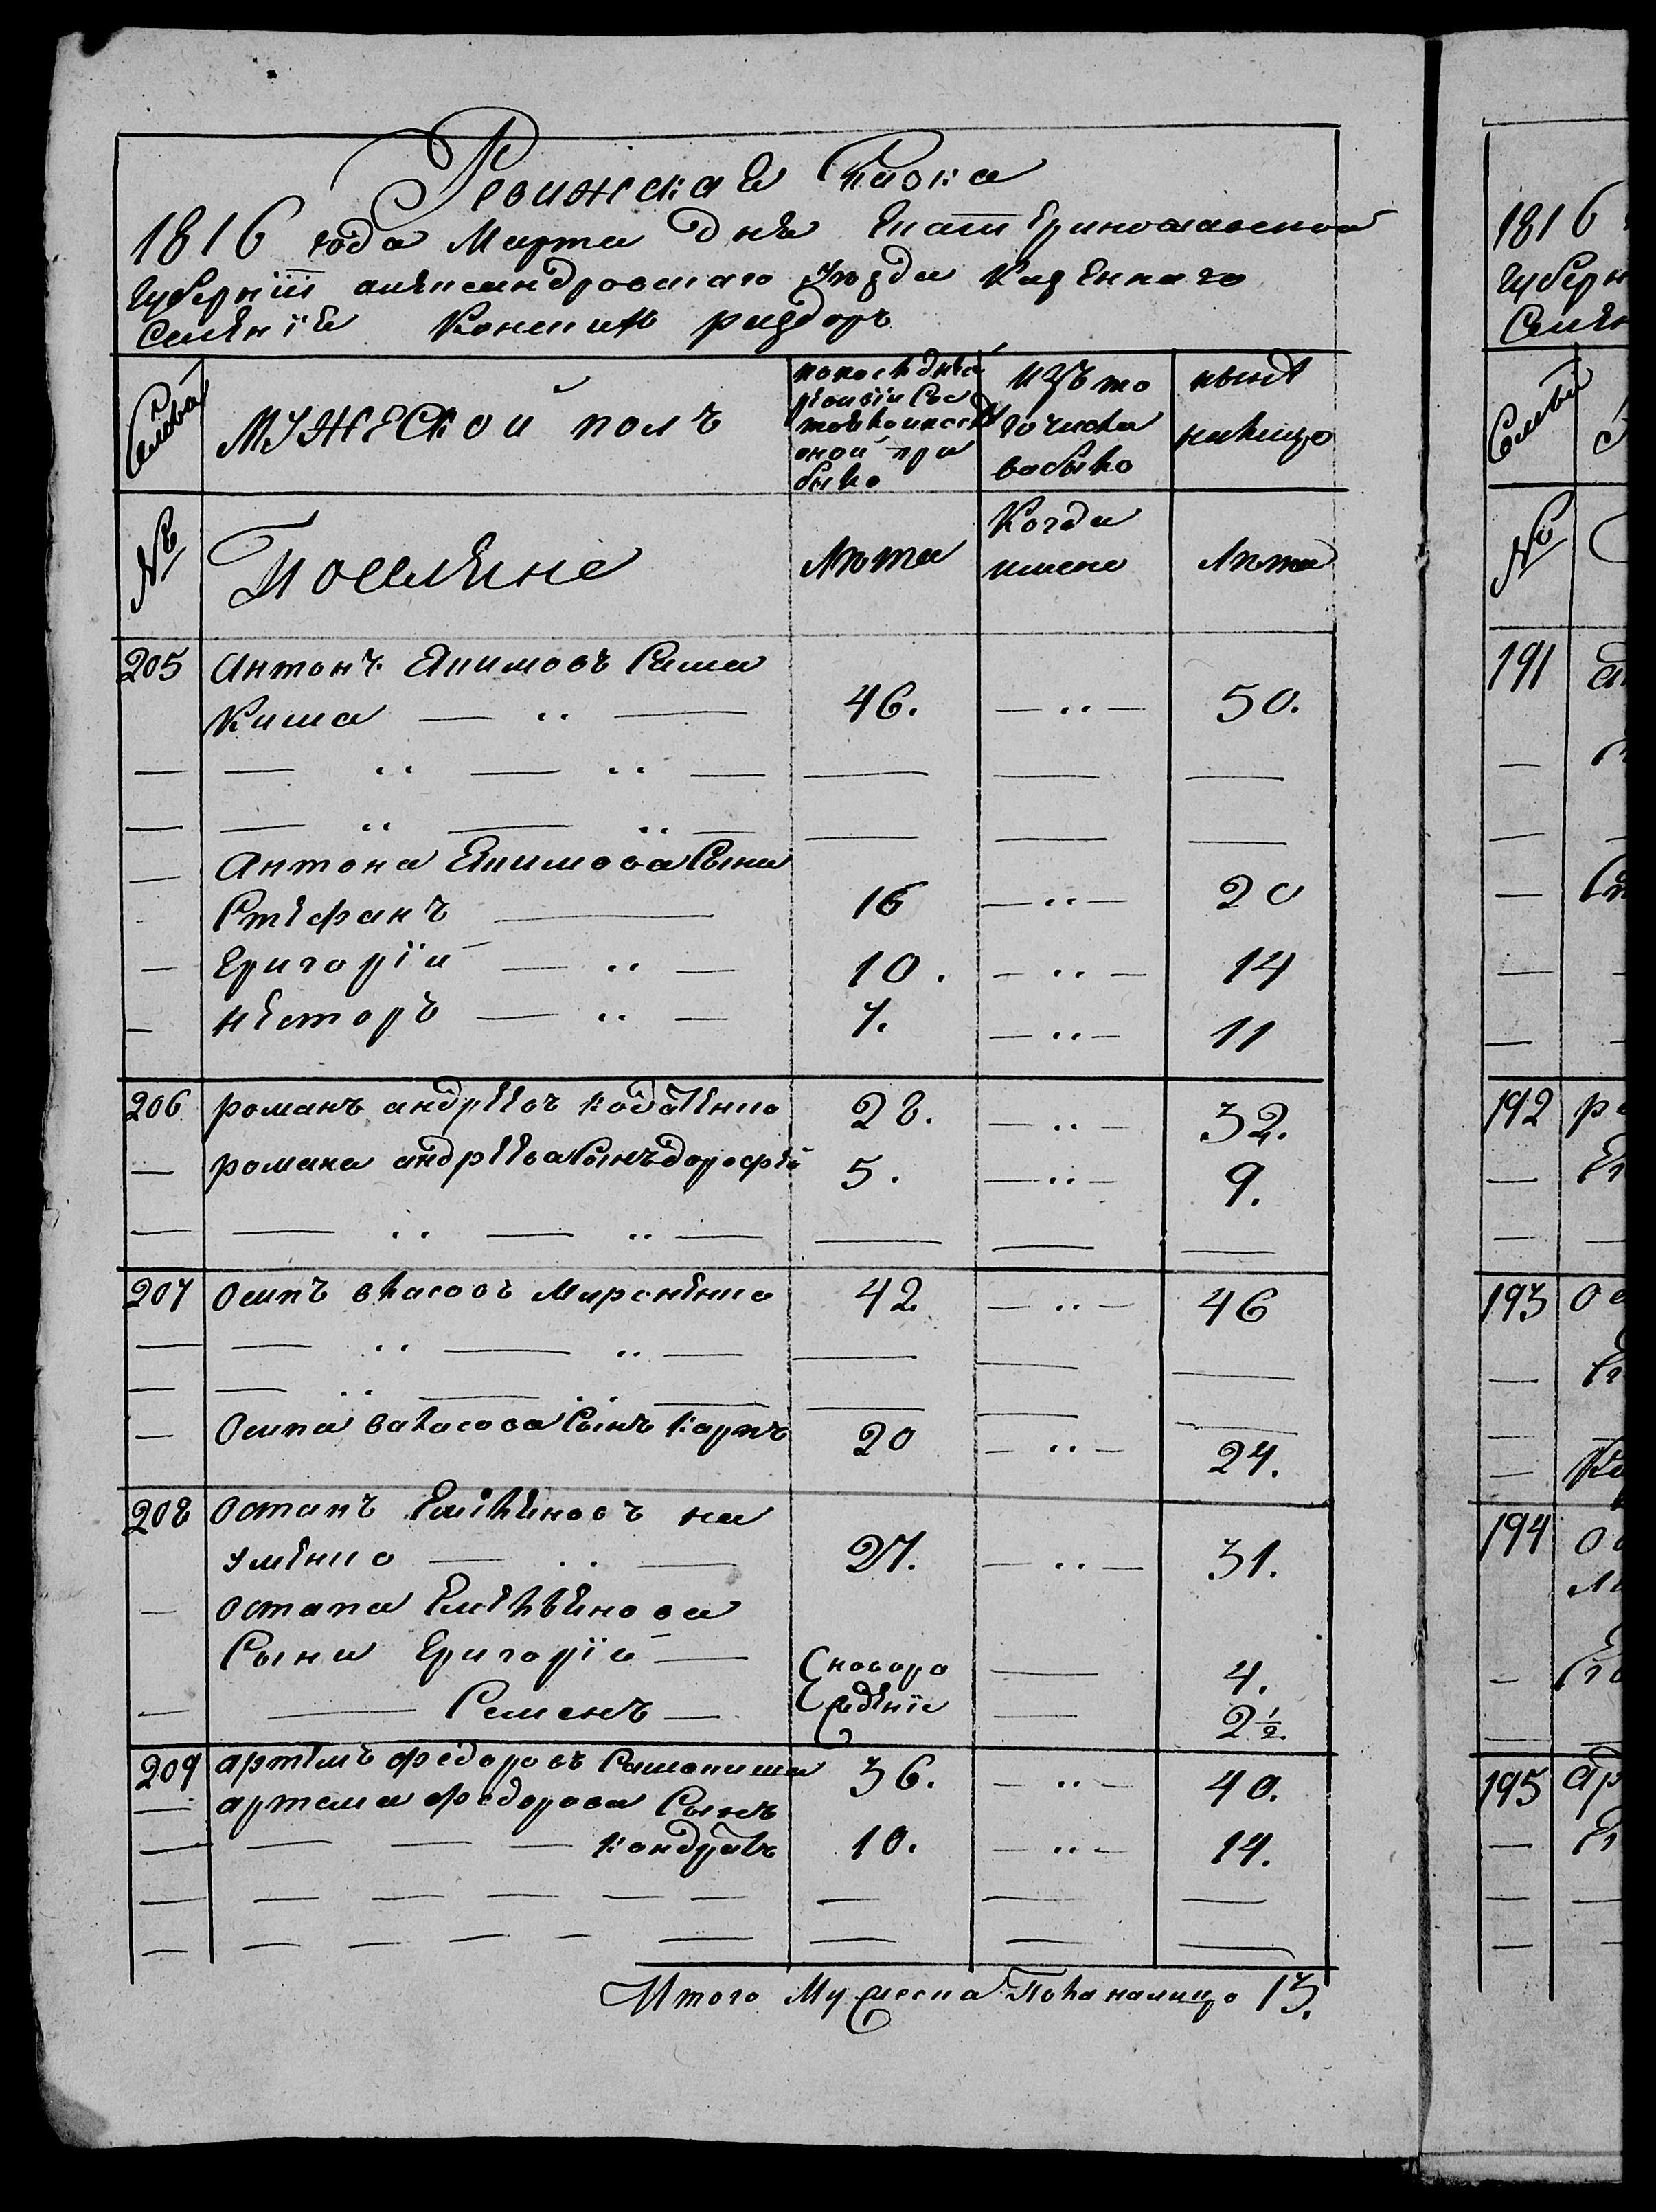 Ревижская Скаска
1816 года Марта дня Екатеринославской
Губернiи александровского Уезда Казенного
Селенiя Конских раздор
Семьи
мужеской полъ
по последней
ревизiи состояло и после
оной при
было
изъ то
го числа
выбыло
ныне
налицо
№
Поселяне
Лета
Когда
имено
Лета
205 Антонъ Якимовъ Сама
Киша — " — 46. — " — 50.
— — " — " — — — —
— — " — " — — — —
— Антона Якимова Сына
Стефанъ — 16 — " — 20
— Григорiй — " — 10. — " — 14
— Несторъ — " — 7. — " — 11
206 романъ андреевъ кодаченко 28. — " — 32.
— романа андреева Сынъ дорофей 5. — " — 9.
— — " — " — — — —
207 Осипъ власовъ Мироненко 42 — " — 46
— — " — " — — — —
— — " — " — — — —
— Осипа власова Сынъ карпъ 20 — " — 24.
208 Остапъ Емельяновъ на
уменко — " — 27. — " — 31.
— Остапа Емельянова
Сына Григорiй — новоро — 4.
— — Семенъ — жденiе — 2 1/2.
209 артемъ федоровъ 36. — " — 40.
— артема федорова Сынъ
— — — — кондратъ 10. — " — 14.
— — — — — — — — —
— — — — — — — — —
Итого Мужеска Пола налицо 13.
1816
Губерн
Селен
Семьи
№
191
—
—
—
—
—
192 ро
—
—
193 Ос
—
—
— Ка
194 Ос
—
—
195 Ар
—
—
—